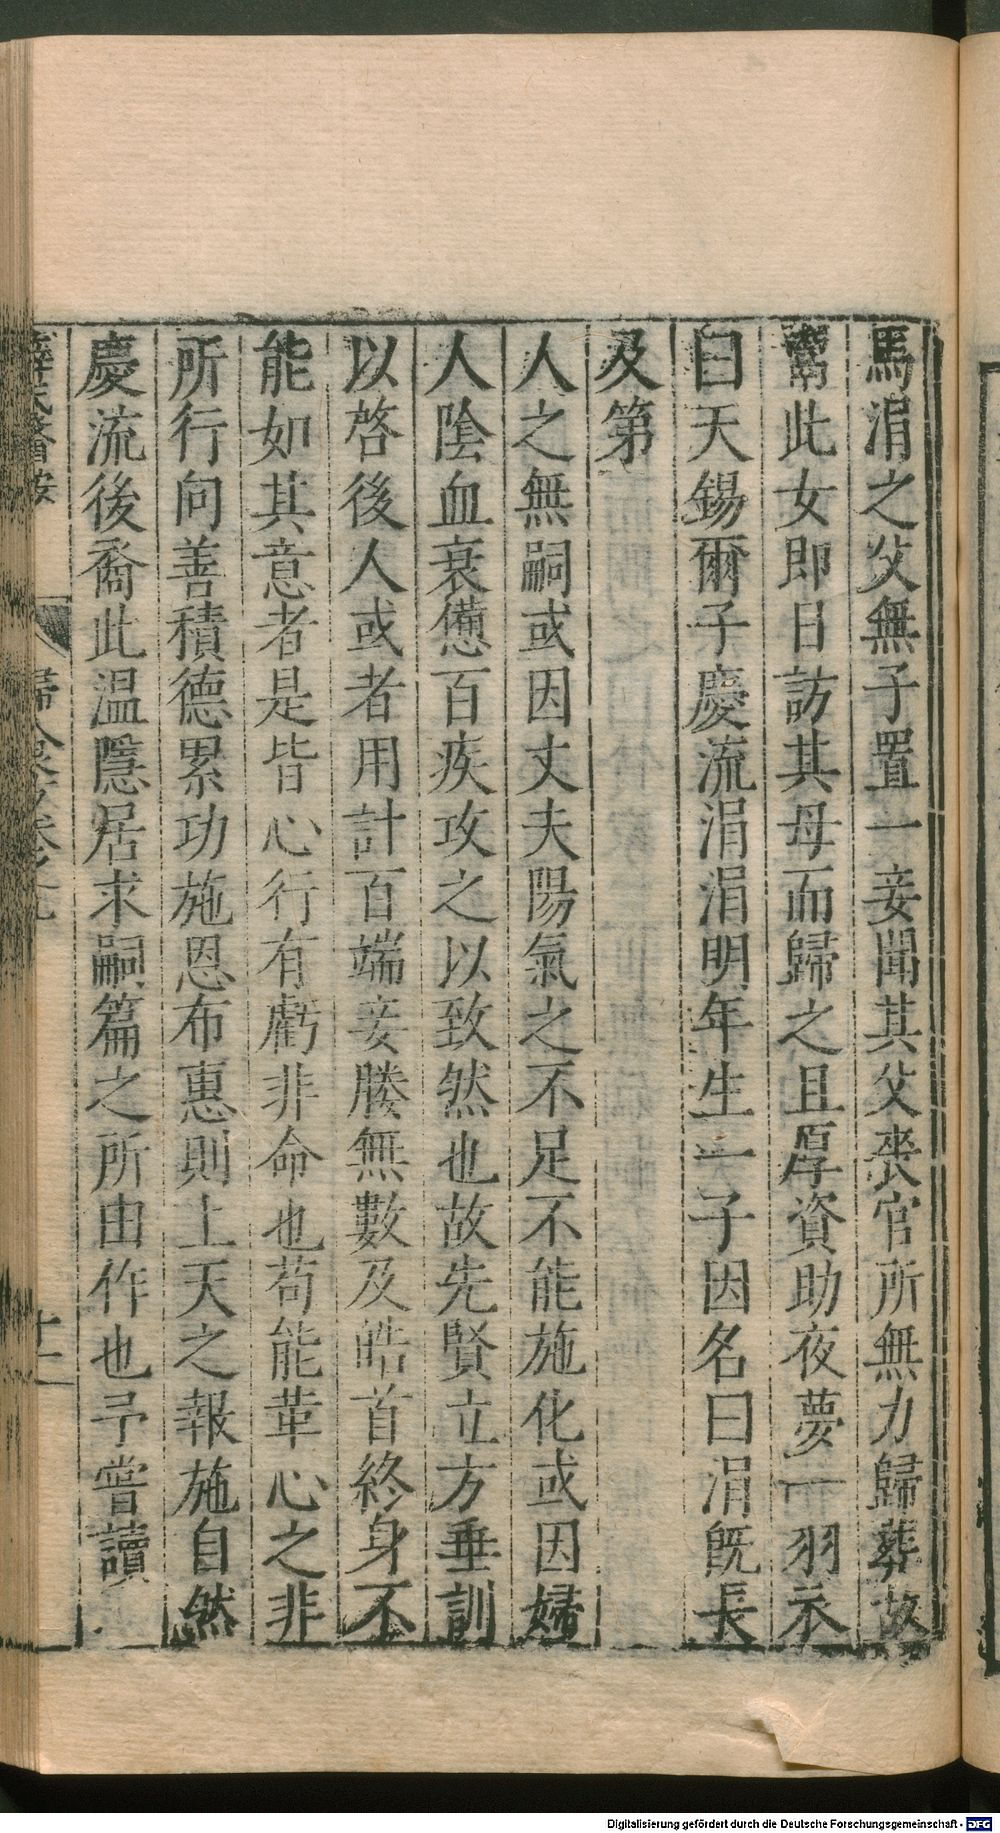 馬涓之父無子置一妾聞其父喪官所無力歸葬故
鬻此女即日訪其母而歸之且厚資助夜夢一羽衣
曰天錫爾子慶流涓涓明年生一子因名曰涓旣長
及第
人之無嗣或因丈夫陽氣之不足不能施化或因婦
人陰血衰憊百疾攻之以致然也故先賢立方垂訓
以啓後人或者用計百端妾媵無數及皓首終身不
能如其意者是皆心行有虧非命也苟能革心之非
所行向善積德累功施恩布惠則上天之報施自然
慶流後裔此溫隱居求嗣篇之所由作也予嘗讀
薛氏醫按
婦人良方卷之九
十二
Digitalisierung gefördert durch die Deutsche Forschungsgemeinschaft - DFG